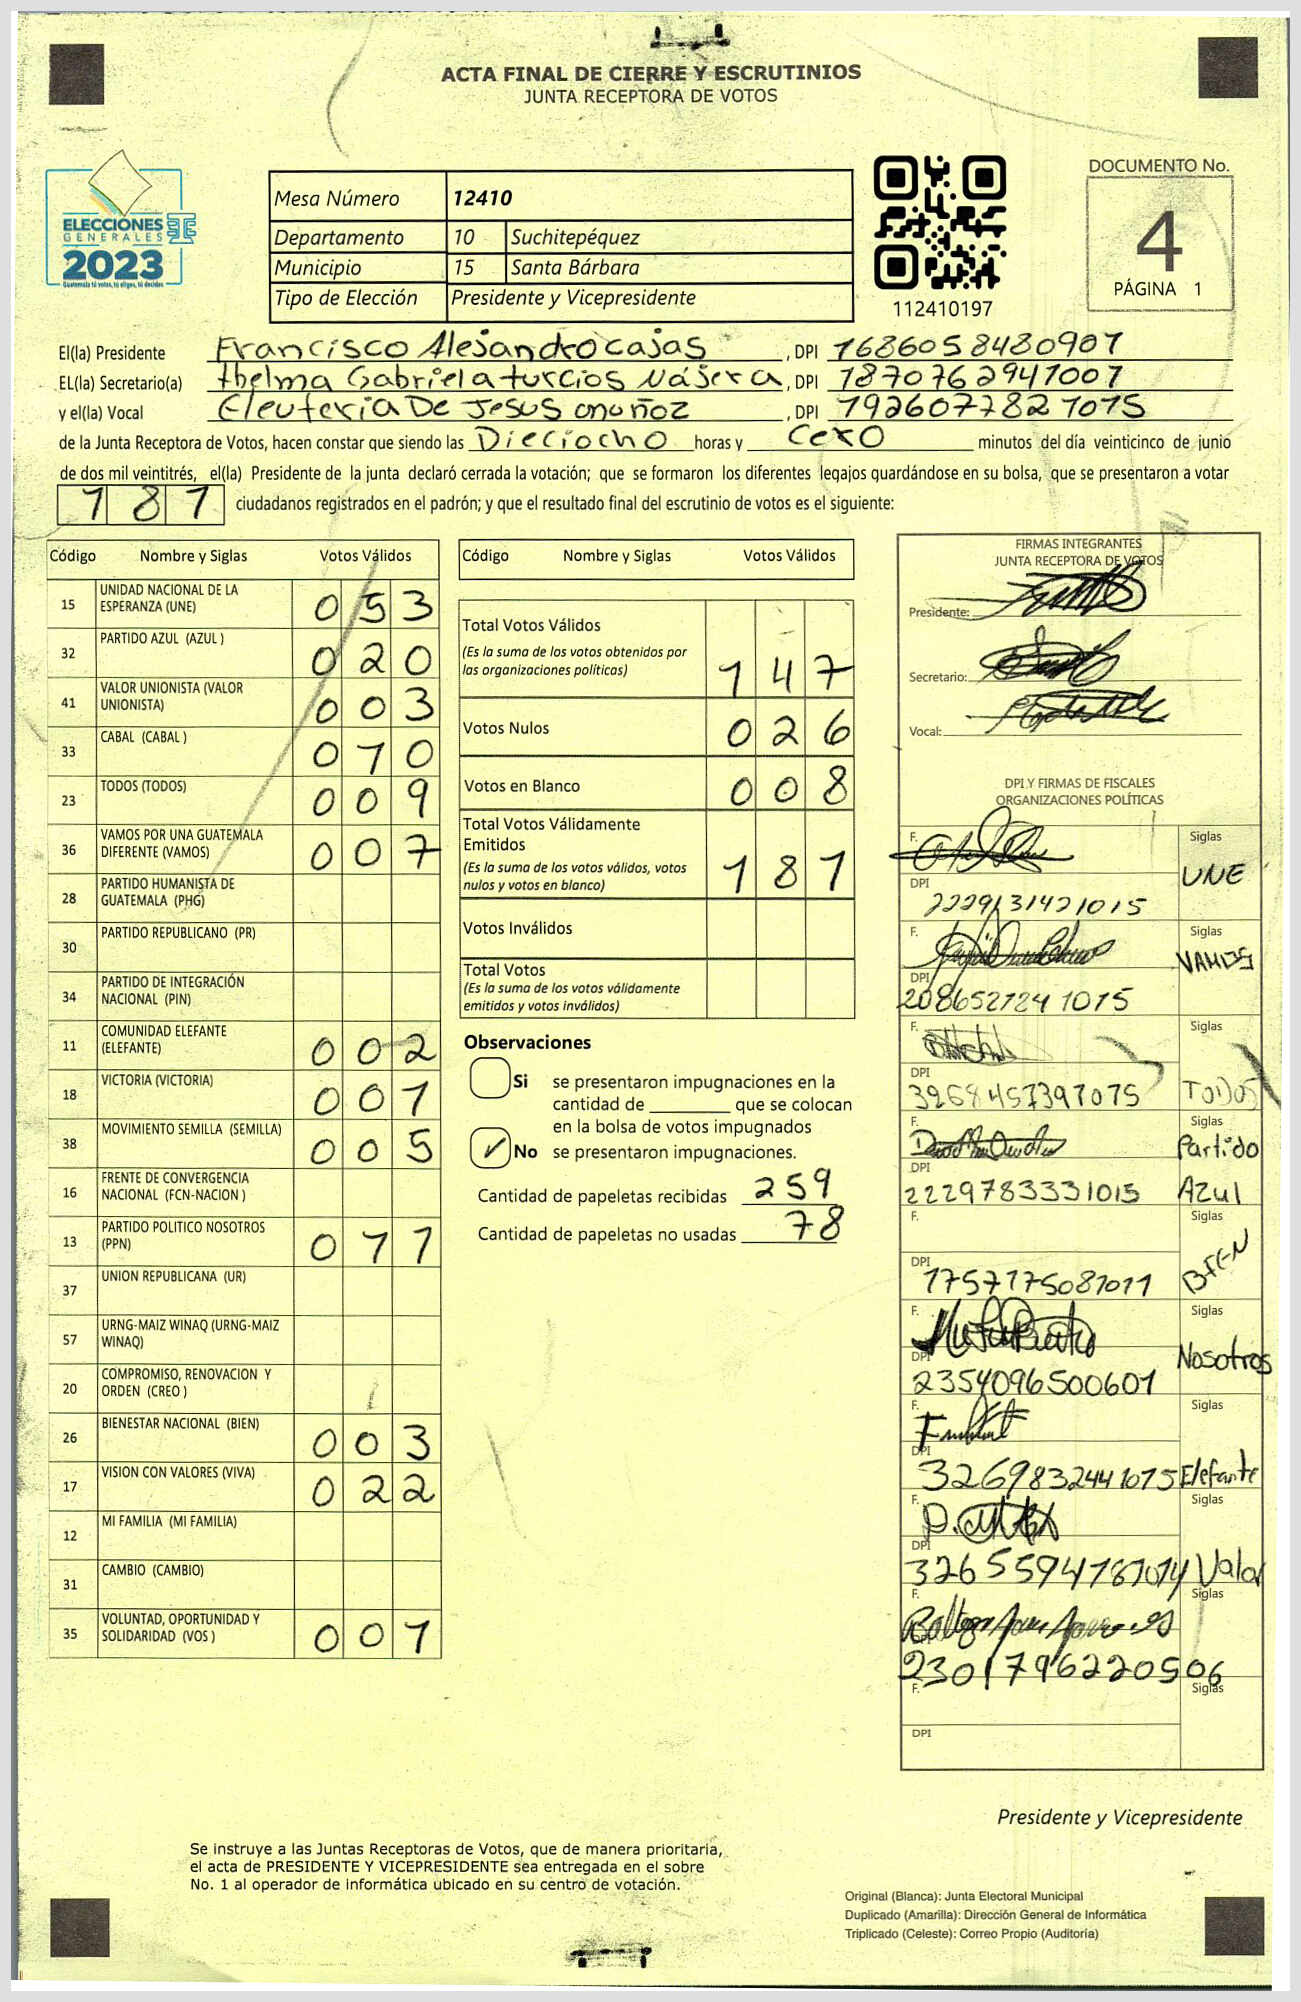 ACTA FINAL DE CIERRE Y ESCRUTINIOS
JUNTA RECEPTORA DE VOTOS
ELECCIONES
GENERALES
2023
Guatemala tú votas, tú eliges, tú decides
Mesa Número 12410
Departamento 10 Suchitepéquez
Municipio 15 Santa Bárbara
Tipo de Elección Presidente y Vicepresidente
112410197
DOCUMENTO No.
4
PÁGINA 1
El(la) Presidente Francisco Alejandro cajas , DPI 1686058480901
EL(la) Secretario(a) thelma Gabriela turcios Nájera , DPI 1870762941007
y el(la) Vocal Eleuteria De Jesus muñoz , DPI 1926077821015
de la Junta Receptora de Votos, hacen constar que siendo las Dieciocho horas y cero minutos del día veinticinco de junio
de dos mil veintitrés, el(la) Presidente de la junta declaró cerrada la votación; que se formaron los diferentes legajos guardándose en su bolsa, que se presentaron a votar
181 ciudadanos registrados en el padrón; y que el resultado final del escrutinio de votos es el siguiente:
Código Nombre y Siglas Votos Válidos
15 UNIDAD NACIONAL DE LA ESPERANZA (UNE) 053
32 PARTIDO AZUL (AZUL ) 020
41 VALOR UNIONISTA (VALOR UNIONISTA) 003
33 CABAL (CABAL ) 010
23 TODOS (TODOS) 009
36 VAMOS POR UNA GUATEMALA DIFERENTE (VAMOS) 007
28 PARTIDO HUMANISTA DE GUATEMALA (PHG)
30 PARTIDO REPUBLICANO (PR)
34 PARTIDO DE INTEGRACIÓN NACIONAL (PIN)
11 COMUNIDAD ELEFANTE (ELEFANTE) 002
18 VICTORIA (VICTORIA) 001
38 MOVIMIENTO SEMILLA (SEMILLA) 005
16 FRENTE DE CONVERGENCIA NACIONAL (FCN-NACION )
13 PARTIDO POLITICO NOSOTROS (PPN) 011
37 UNION REPUBLICANA (UR)
57 URNG-MAIZ WINAQ (URNG-MAIZ WINAQ)
20 COMPROMISO, RENOVACION Y ORDEN (CREO )
26 BIENESTAR NACIONAL (BIEN) 003
17 VISION CON VALORES (VIVA) 022
12 MI FAMILIA (MI FAMILIA)
31 CAMBIO (CAMBIO)
35 VOLUNTAD, OPORTUNIDAD Y SOLIDARIDAD (VOS ) 001
Código Nombre y Siglas Votos Válidos
Total Votos Válidos
(Es la suma de los votos obtenidos por
las organizaciones políticas) 147
Votos Nulos 026
Votos en Blanco 008
Total Votos Válidamente
Emitidos
(Es la suma de los votos válidos, votos
nulos y votos en blanco) 181
Votos Inválidos
Total Votos
(Es la suma de los votos válidamente
emitidos y votos inválidos)
Observaciones
Si se presentaron impugnaciones en la
cantidad de ________ que se colocan
en la bolsa de votos impugnados
No se presentaron impugnaciones.
Cantidad de papeletas recibidas 259
Cantidad de papeletas no usadas 78
FIRMAS INTEGRANTES
JUNTA RECEPTORA DE VOTOS
Presidente:
Secretario:
Vocal:
DPI Y FIRMAS DE FISCALES
ORGANIZACIONES POLÍTICAS
F. Siglas
UNE
DPI
2229131421015
F. Siglas
VAMOS
DPI
2086521241015
F. Siglas
DPI
3268457391015 TODOS
F. Siglas
Partido
DPI
2229783331015 Azul
F. Siglas
BIEN
DPI
1757175081011
F. Siglas
Nosotros
DPI
2354096500601
F. Siglas
DPI
3269832441015 Elefante
F. Siglas
DPI
3265594781014 Valor
F. Siglas
DPI
2301796220506
F. Siglas
DPI
Presidente y Vicepresidente
Se instruye a las Juntas Receptoras de Votos, que de manera prioritaria,
el acta de PRESIDENTE Y VICEPRESIDENTE sea entregada en el sobre
No. 1 al operador de informática ubicado en su centro de votación.
Original (Blanca): Junta Electoral Municipal
Duplicado (Amarilla): Dirección General de Informática
Triplicado (Celeste): Correo Propio (Auditoría)